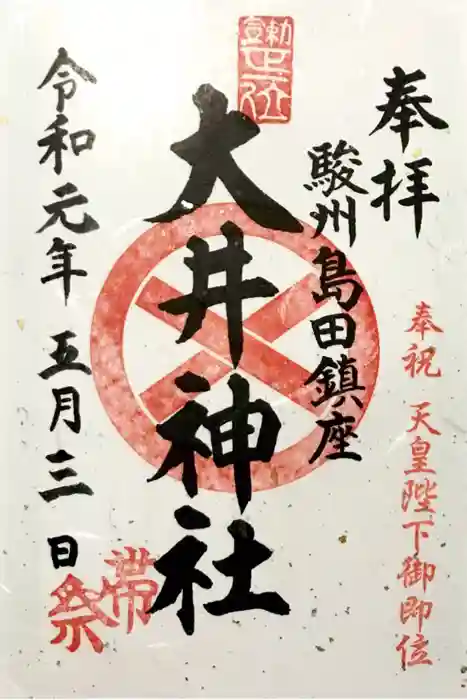 奉拝
奉祝 天皇陛下御即位
駿州島田鎮座
勅宣正一位
大井神社
令和元年五月三日
帯祭